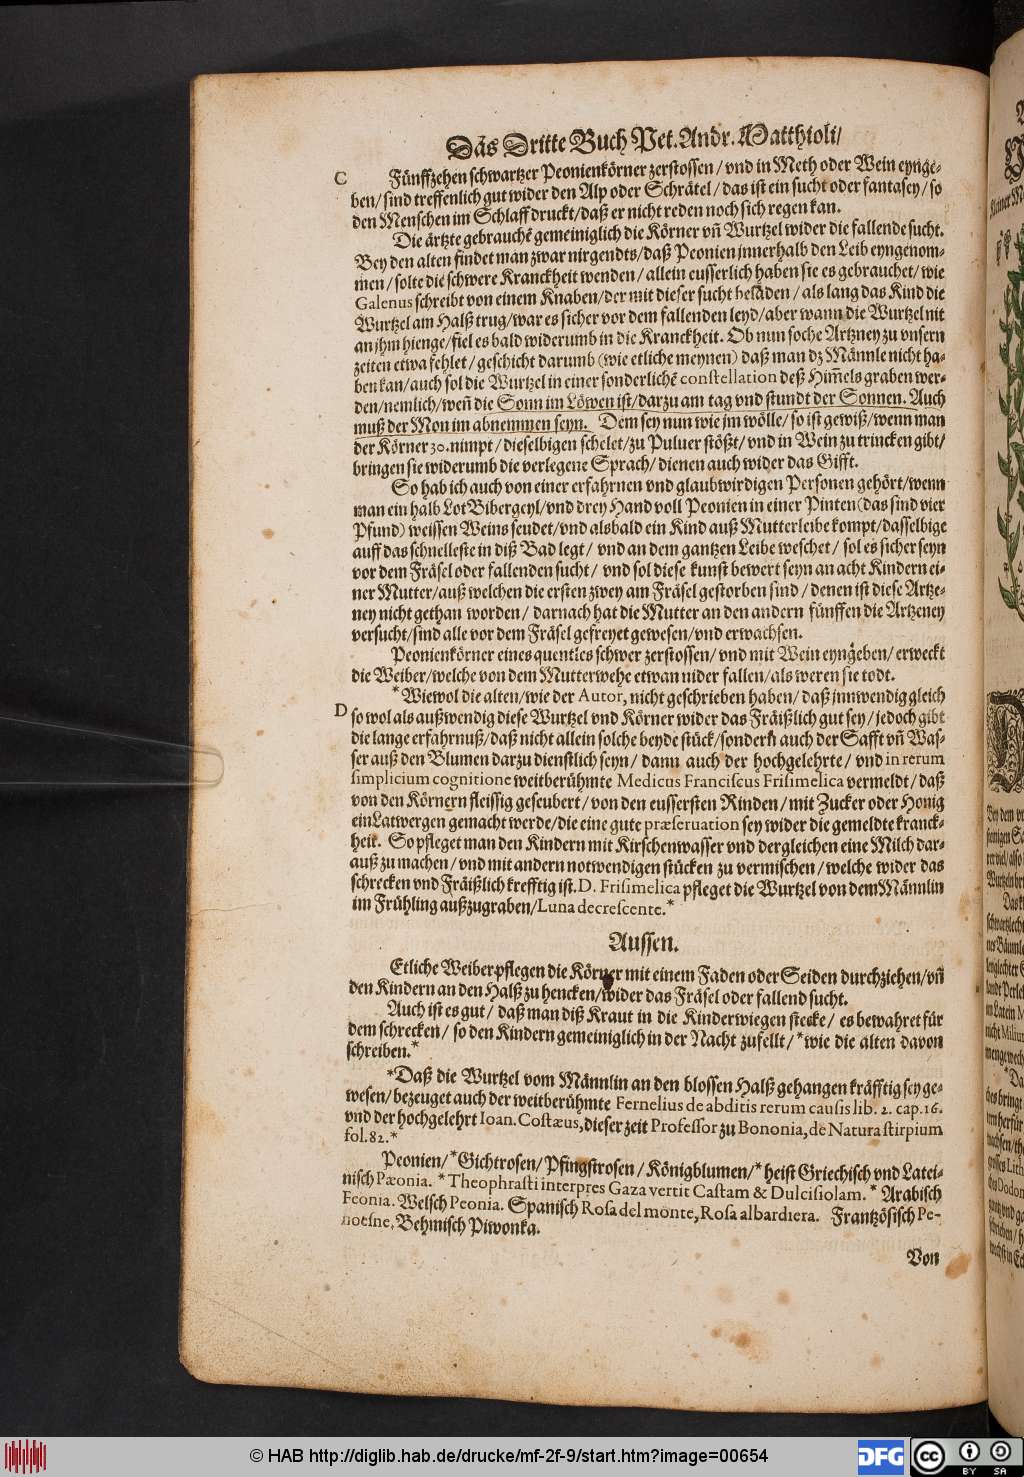 Das Dritte Buch Pet. Andr. Matthioli/
C Fünffzehen schwartzer Peonienkörner zerstossen / vnd in Meth oder Wein eynge-
ben/ sind treffenlich gut wider den Alp oder Schrätel / das ist ein sucht oder fantasey / so
den Menschen im Schlaff druckt/ daß er nicht reden noch sich regen kan.
Die ärtzte gebrauchẽ gemeiniglich die Körner vñ Wurtzel wider die fallende sucht.
Bey den alten findet man zwar nirgendts/ daß Peonien jnnerhalb den Leib eyngenom-
men / solte die schwere Kranckheit wenden / allein eusserlich haben sie es gebrauchet/ wie
Galenus schreibt von einem Knaben/ der mit dieser sucht beladen / als lang das Kind die
Wurtzel am Halß trug/ war es sicher vor dem fallenden leyd/ aber wann die Wurtzel nit
an jhm hienge/ fiel es bald widerumb in die Kranckheit. Ob nun soche Artzney zu vnsern
zeiten etwa fehlet / geschicht darumb (wie etliche meynen) daß man dz Männle nicht ha-
ben kan/ auch sol die Wurtzel in einer sonderlichẽ constellation deß Him̃els graben wer-
den/ nemlich/ weñ die Sonn im Löwen ist/ darzu am tag vnd stundt der Sonnen. Auch
muß der Mon im abnemmen seyn. Dem sey nun wie jm wölle/ so ist gewiß/ wenn man
der Körner 30. nimpt / dieselbigen schelet/ zu Puluer stößt/ vnd in Wein zu trincken gibt/
bringen sie widerumb die verlegene Sprach/ dienen auch wider das Gifft.
So hab ich auch von einer erfahrnen vnd glaubwirdigen Personen gehört/ wenn
man ein halb Lot Bibergeyl/ vnd drey Hand voll Peonien in einer Pinten (das sind vier
Pfund) weissen Weins seudet/ vnd alsbald ein Kind auß Mutterleibe kompt/ dasselbige
auff das schnelleste in diß Bad legt / vnd an dem gantzen Leibe weschet / sol es sicher seyn
vor dem Fräsel oder fallenden sucht / vnd sol diese kunst bewert seyn an acht Kindern ei-
ner Mutter/ auß welchen die ersten zwey am Fräsel gestorben sind / denen ist diese Artze-
ney nicht gethan worden / darnach hat die Mutter an den andern fünffen die Artzeney
versucht/ sind alle vor dem Fräsel gefreyet gewesen/ vnd erwachsen.
Peonienkörner eines quentles schwer zerstossen / vnd mit Wein eyngeben/ erweckt
die Weiber/ welche von dem Mutterwehe etwan nider fallen/ als weren sie todt.
*Wiewol die alten/ wie der Autor, nicht geschrieben haben/ daß jnnwendig gleich
D so wol als außwendig diese Wurtzel vnd Körner wider das Fräißlich gut sey / jedoch gibt
die lange erfahrnuß/ daß nicht allein solche beyde stück/ sondern auch der Safft vñ Was-
ser auß den Blumen darzu dienstlich seyn / dann auch der hochgelehrte / vnd in rerum
simplicium cognitione weitberühmte Medicus Franciscus Frisimelica vermeldt / daß
von den Körnern fleissig geseubert / von den eussersten Rinden / mit Zucker oder Honig
ein Latwergen gemacht werde/ die eine gute præseruation sey wider die gemeldte kranck-
heit. So pfleget man den Kindern mit Kirschenwasser vnd dergleichen eine Milch dar-
auß zu machen / vnd mit andern notwendigen stücken zu vermischen / welche wider das
schrecken vnd Fräißlich krefftig ist. D. Frisimelica pfleget die Wurtzel von dem Männlin
im Frühling außzugraben/ Luna decrescente.*
Aussen.
Etliche Weiber pflegen die Körner mit einem Faden oder Seiden durchziehen/ vñ
den Kindern an den Halß zu hencken/ wider das Fräsel oder fallend sucht.
Auch ist es gut / daß man diß Kraut in die Kinderwiegen stecke / es bewahret für
dem schrecken / so den Kindern gemeiniglich in der Nacht zufellt / *wie die alten davon
schreiben.*
*Daß die Wurtzel vom Männlin an den blossen Halß gehangen kräfftig sey ge-
wesen/ bezeuget auch der weitberühmte Fernelius de abditis rerum causis lib. 2. cap. 16.
vnd der hochgelehrt Ioan. Costæus, dieser zeit Professor zu Bononia, de Natura stirpium
fol. 82.*
Peonien / *Gichtrosen / Pfingstrosen / Königblumen/* heist Griechisch vnd Latei-
nisch Pæonia. *Theophrasti interpres Gaza vertit Castam & Dulcisiolam.* Arabisch
Feonia. Welsch Peonia. Spanisch Rosa del monte, Rosa albardiera. Frantzösisch Pe-
noesne, Behmisch Piwonka.
Von
© HAB http://diglib.hab.de/drucke/mf-2f-9/start.htm?image=00654
DFG
cc BY SA